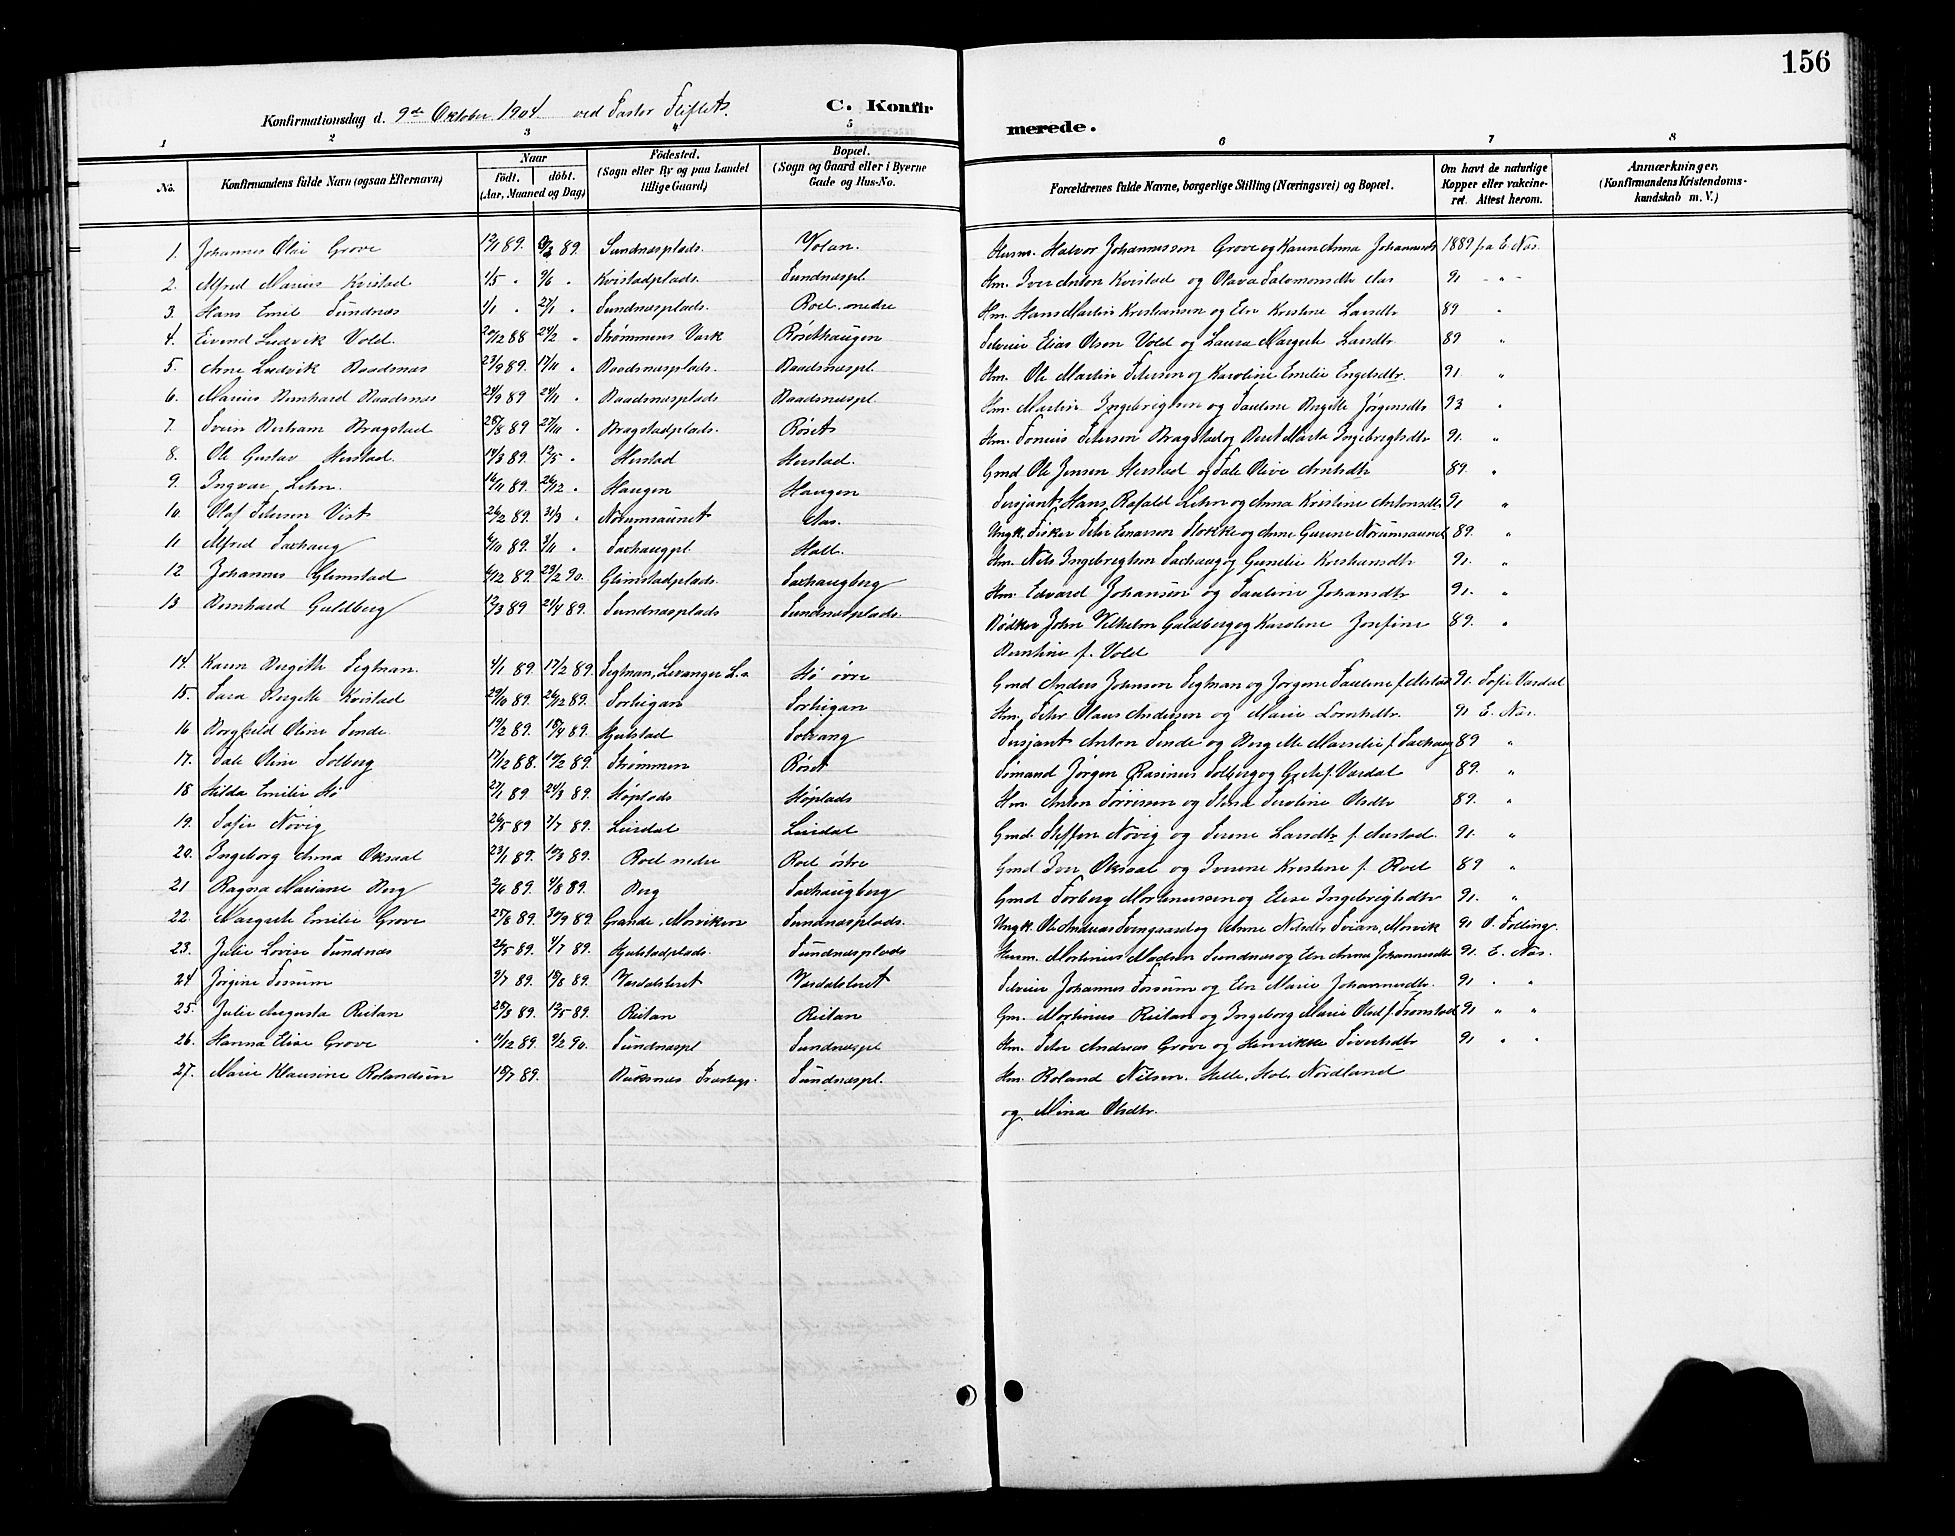 156
Konfirmationsdag d. 9de Oktober 1904 ved Pastor Fliflet.
C. Konfirmerede.
1 2 3 5 6 7 8
No. Konfirmandens fulde Navn (ogsaa Efternavn) Naar født. døbt. (Aar, Maaned og Dag) Fødested. (Sogn eller By og paa Landet tillige Gaard) Bopæl. (Sogn og Gaard eller i Byerne Gade og Hus-No.) Forældrenes fulde Navne, borgerlige Stilling (Næringsvei) og Bopæl. Om havt de naturlige Kopper eller vakcineret. Attest herom. Anmærkninger. (Konfirmandens Kristendomskundskab m. V.)
1. Johannes Olai Grove 12/1 89. 89. Sundnæsplads. Volan. Husm. Halvor Johannessen Grove og Karen Anna Johannesdt 1889 fra E. Næs.
2. Alfred Marius Kvistad 1/5 " 9/6 " Kvistadplads. Sundnæspl. Hm. Iver Anton Kvistad og Olava Salomonsdtr Aas 91 - " -
3. Hans Emil Sundnæs 1/1 " 27/1 " Sundnæsplads. Roel nedre Hm. Hans Martin Kristiansen og Elen Kristine Larsdtr 89 "
4. Eivind Ludvik Vold. 20/12 88 24/2 " Strømmens Værk Røsethaugen Elias Olsen Vold og Laura Margrete Larsdtr 89 "
5. Arne Ludvik Daadsnæs 23/9 89. 17/11 " Daadsnæsplads. Daadsnæspl. Hm. Ole Martin Petersen og Karoline Emelie Engelsdtr. 91. "
6. Marius Bernhard Daadsnæs 24/9 89 24/11 " Daadsnæsplads Daadsnæspl. Hm. Martin Ingebrigtsen og Pauline Bergitte Jørgensdtr 93 "
7. Svein Bertram Bragstad 25/8 89 27/10 " Bragstadplads. Røset Hm. Petersen Bragstad og Beret Marta Ingebrigtsdtr 91. "
8. Ole Gustav Herstad. 14/3 89. 12/5 " Herstad Herstad. Gmd Ole Jensen Herstad og Olive Arntsdtr 89. "
9. Ingvar Lehn. 16/11 89. 26/12 " Haugen Haugen Sersjant Hans Rafald Lehn og Anna Kristine Antonsdtr. 91 "
10. Olaf Petersen Vist 26/2 89. 31/3 " Norumsaunet Aas. Ungk. Fisker Peter Einarsen Stokke og Anne Gurine Norumsaunet 89. "
11 Alfred Saxhaug 6/10 89. 3/11 " Saxhaugpl. Hall. Hm. Nils Ingebrigtsen Saxhaug og Gunelie Kristiansdtr 91. "
12 Johannes Glimstad 6/12 89. 23/2 90. Glimstadplads. Saxhaugberg Hm. Edvard Johansen og Pauline Johansdtr 91. "
13 Bernhard Guldberg 12/3 89 21/4 89. Sundnæsplads Sundnæsplads. Bødker John Vilhelm Guldberg og Karoline Josefine 89. "
Berntine f. Vold
14. Karen Bergitte Segtnan. 4/1 89. 17/2 89. Segtnan, Levanger L. Hø øvre Gmd Anders Johnsen Segtnan og Jørgine Pauline f. 91. Sofie Værdal
15. Sara Bergitte Kvistad 29/10 89. 26/12 89. Hm. Peter Olaus Andersen og Marie 91 E. Næs.
16 Borghild Oline Sende. 19/2 89. 15/4 89. Hjelstad Solvang Sersjant Anton Sende og Bergitte Marselie f. Saxhaug 89 "
17. Oline Solberg 17/12 88. 10/2 89. Strømmen Røset Sømand Jørgen Rasinus Solberg og f. Værdal 89. "
18 Hilda Emilie Hø 27/1 89 24/3 89. Høplads Høplads Hm. Anton og Olsdtr 89. "
19. Sofie Nøvig 26/5 89 7/7 89. Luisdal Luisdal Gmd. Steffen Nøvig og Serine Larsdtr f. Austad. 91. "
20. Ingeborg Anna Oksaal 23/1 89. 10/3 89. Roel nedre Roel østre Gmd Iver Oksaal og Iverine Kristine f. Roel 89 "
21 Ragna Mariane Berg 2/6 89. 4/8 89. Berg Saxhaugberg Gmd Torberg Mortinussen og Elise Ingebrigtsdtr 91. "
22. Margrete Emilie Grove 25/8 89. 20/9 89. Grande, Mosviken Sundnæsplads. Ungk. Ole Andreas og Anne Nilsdtr Mosvik 91
23. Julie Lovise Sundnæs 26/5 89. 7/7 89. Hjelstadplads. Sundnæsplads Husm. Mortinius Madsen Sundnæs og Elen Anna Johannesdtr 91. E. Næs.
24 Jørgine Fossum 2/7 89. 18/8 89. Værdalsleret Værdalsleret Johannes Fossum og Elen Marie Johannesdtr. 91 " "
25. Julie Augusta Reitan 25/3 89. 12/5 89. Reitan Reitan Gm. Mortinius Reitan og Ingeborg Marie Olsd f. Tronstad 91 " "
26. Hanna Elise Grove 11/12 89. 9/2 90. Sundnæspl Sundnæspl Hm. Peter Andreas Grove og Henrikke Sivertsdtr 91 " "
27. Marie Klausine Rolandsen 15/7 89. Buksnæs Præstegj. Sundnæspl. Hm. Roland Nilsen. Hol. Nordland
og Mina Olsdtr.